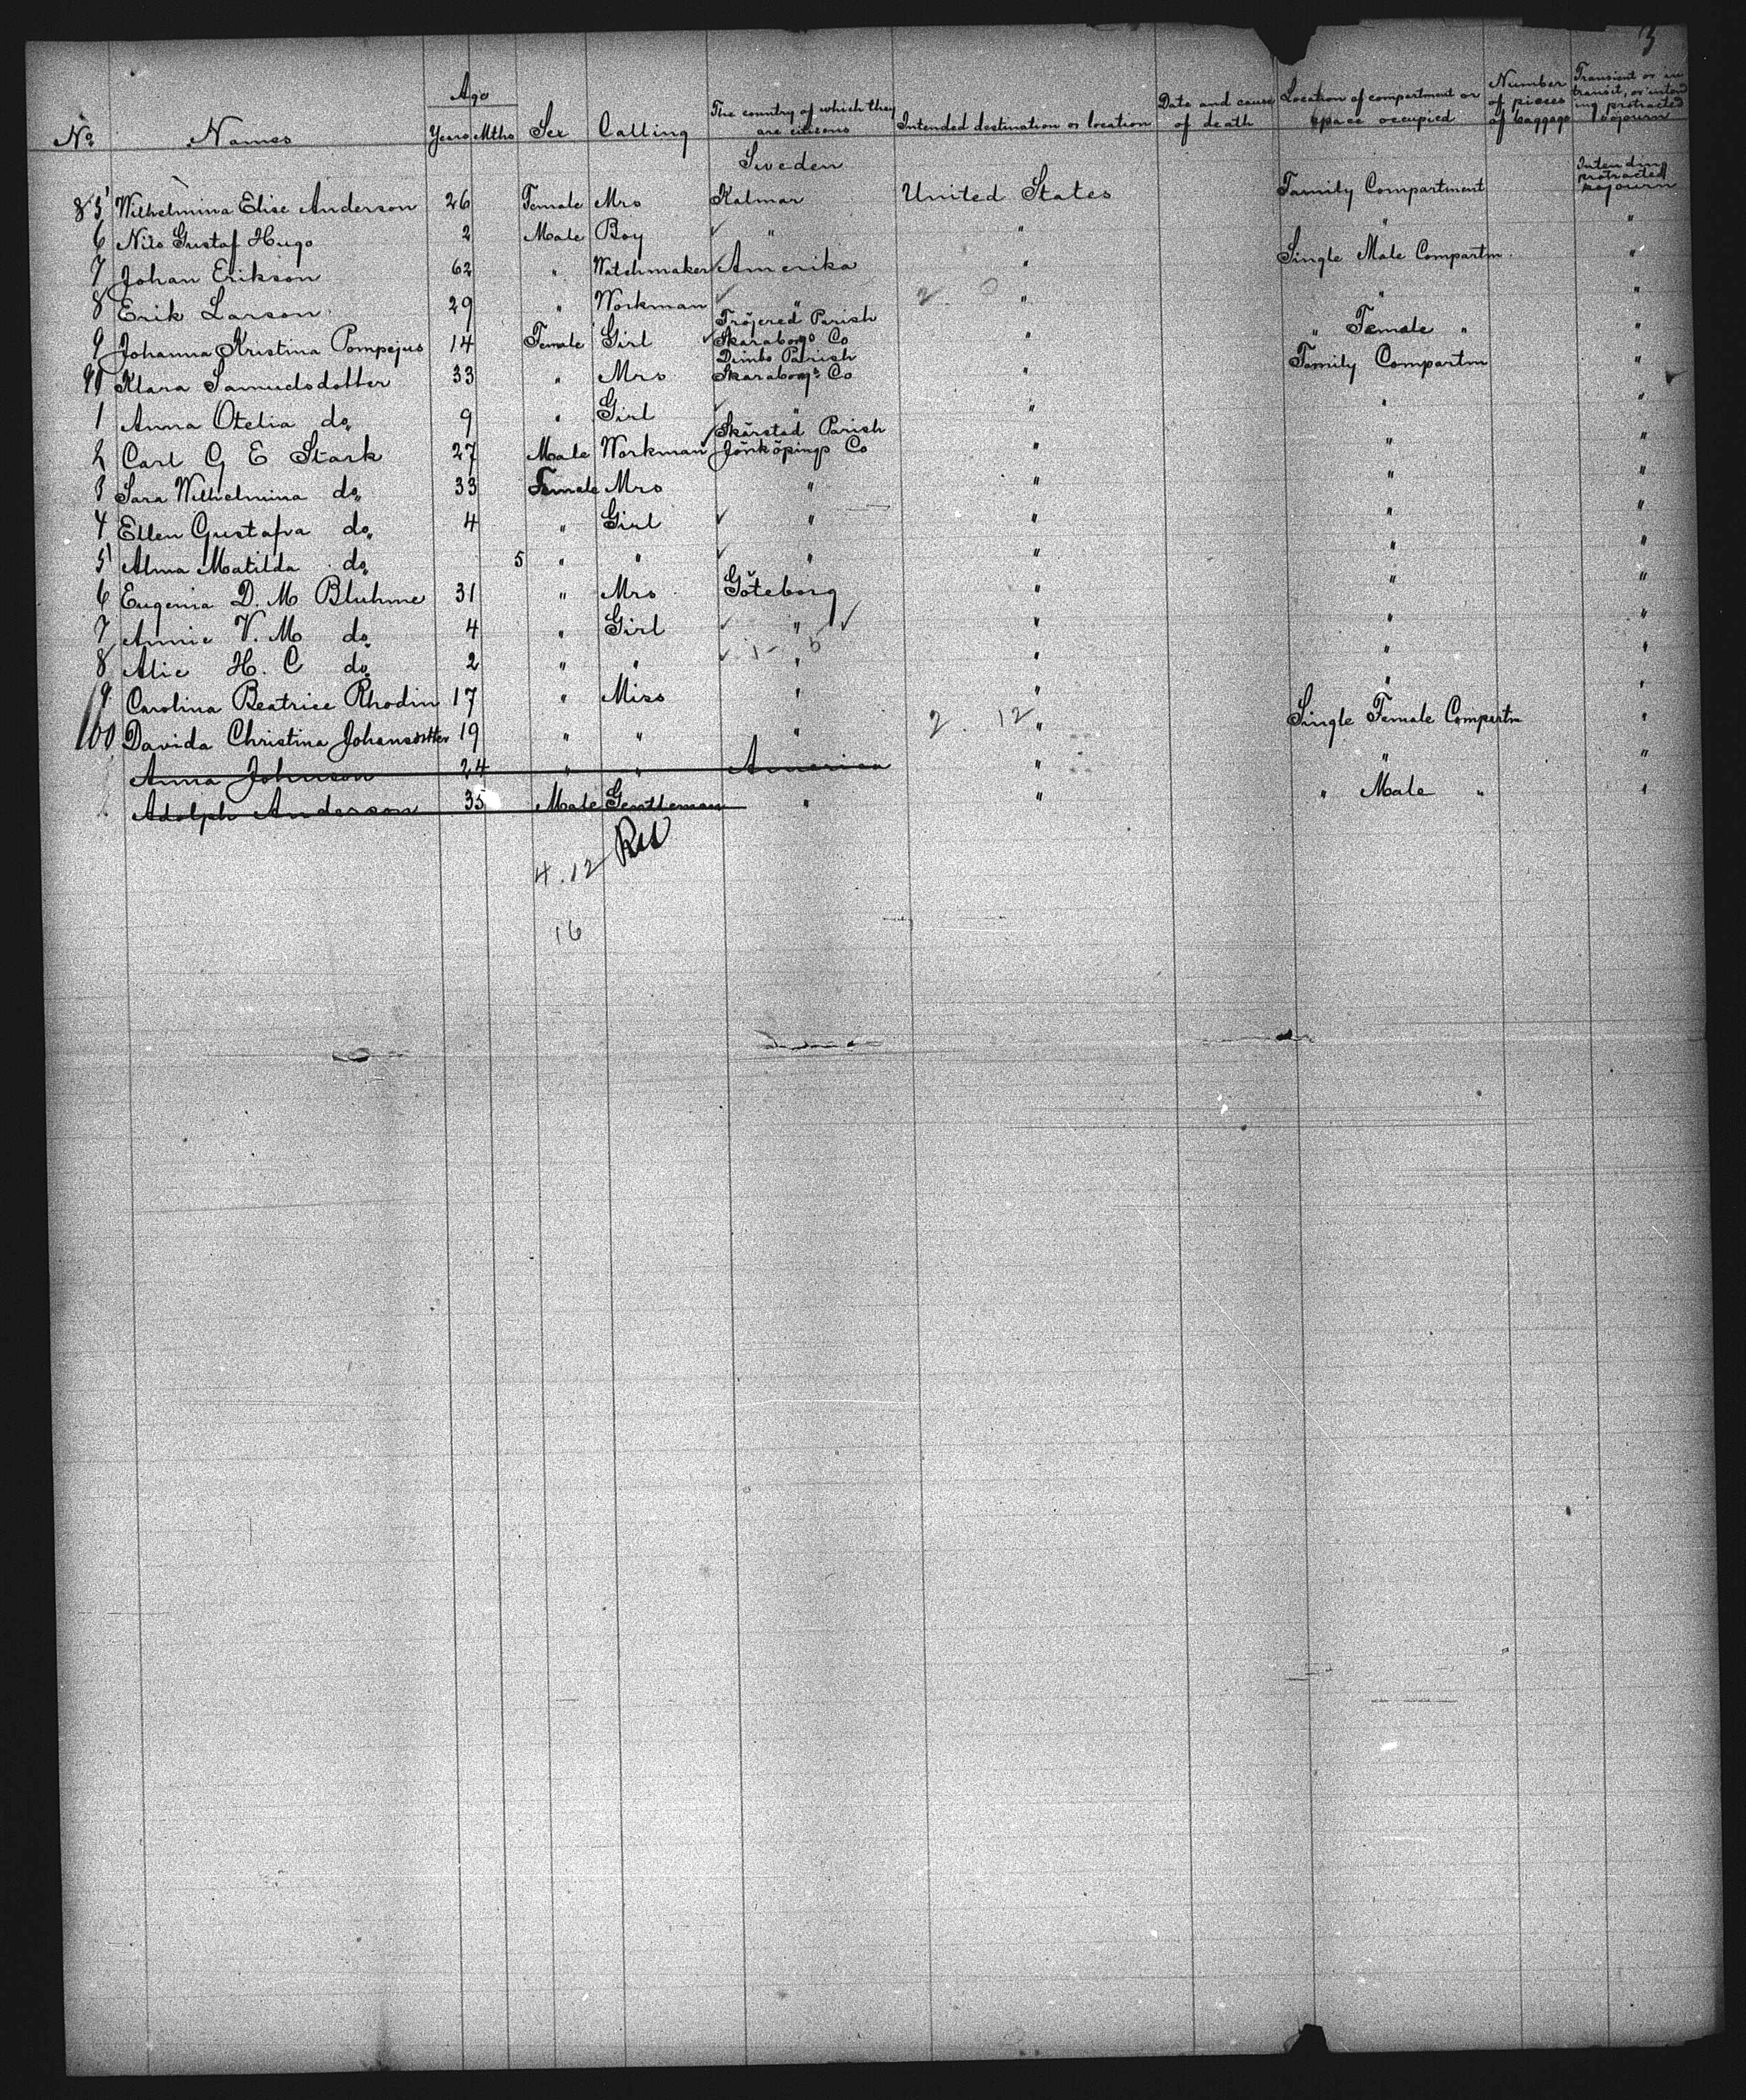 3
No Names Age Years Mths Sex Calling The country of which they are citizens Intended destination or location Date and cause of death Location of compartment or space occupied Number of pieces of baggage Transient or in transit, or intending protracted sojourn
Sweden
85 Wilhelmina Elise Anderson 26 Female Mrs Kalmar United States Family Compartment Intending protracted sojourn
6 Nils Gustaf Hugo 2 Male Boy " " " "
7 Johan Erikson 62 " Watchmaker Amerika " Single Male Compartm. "
8 Erik Larson 29 " Workman " 2. 0 " " "
9 Johanna Kristina Pompejus 14 Female Girl Tröjered Parish Skaraborgs Co " " Female " "
90 Klara Samuelsdotter 33 " Mrs Dimbo Parish Skaraborgs Co " Family Compartm "
1 Anna Otelia do 9 " Girl " " " "
2 Carl G E Stark 27 Male Workman Skärstad Parish Jönköpings Co " " "
3 Sara Wilhelmina do 33 Female Mrs " " " "
4 Ellen Gustafva do 4 " Girl " " " "
5 Alma Matilda do 5 " " " " " "
6 Eugenia D. M Bluhme 31 " Mrs Göteborg " " "
7 Annie V. M do 4 " Girl " " " "
8 Alic H. C do 2 " " " " " "
9 Carolina Beatrice Rhodin 17 " Miss " " " "
100 Davida Christina Johansdotter 19 " " " 2. 12 " Single Female Compartm "
Anna Johnson 24 " " America " " "
Adolph Anderson 35 Male Gentleman " " " Male " "
4.12
16